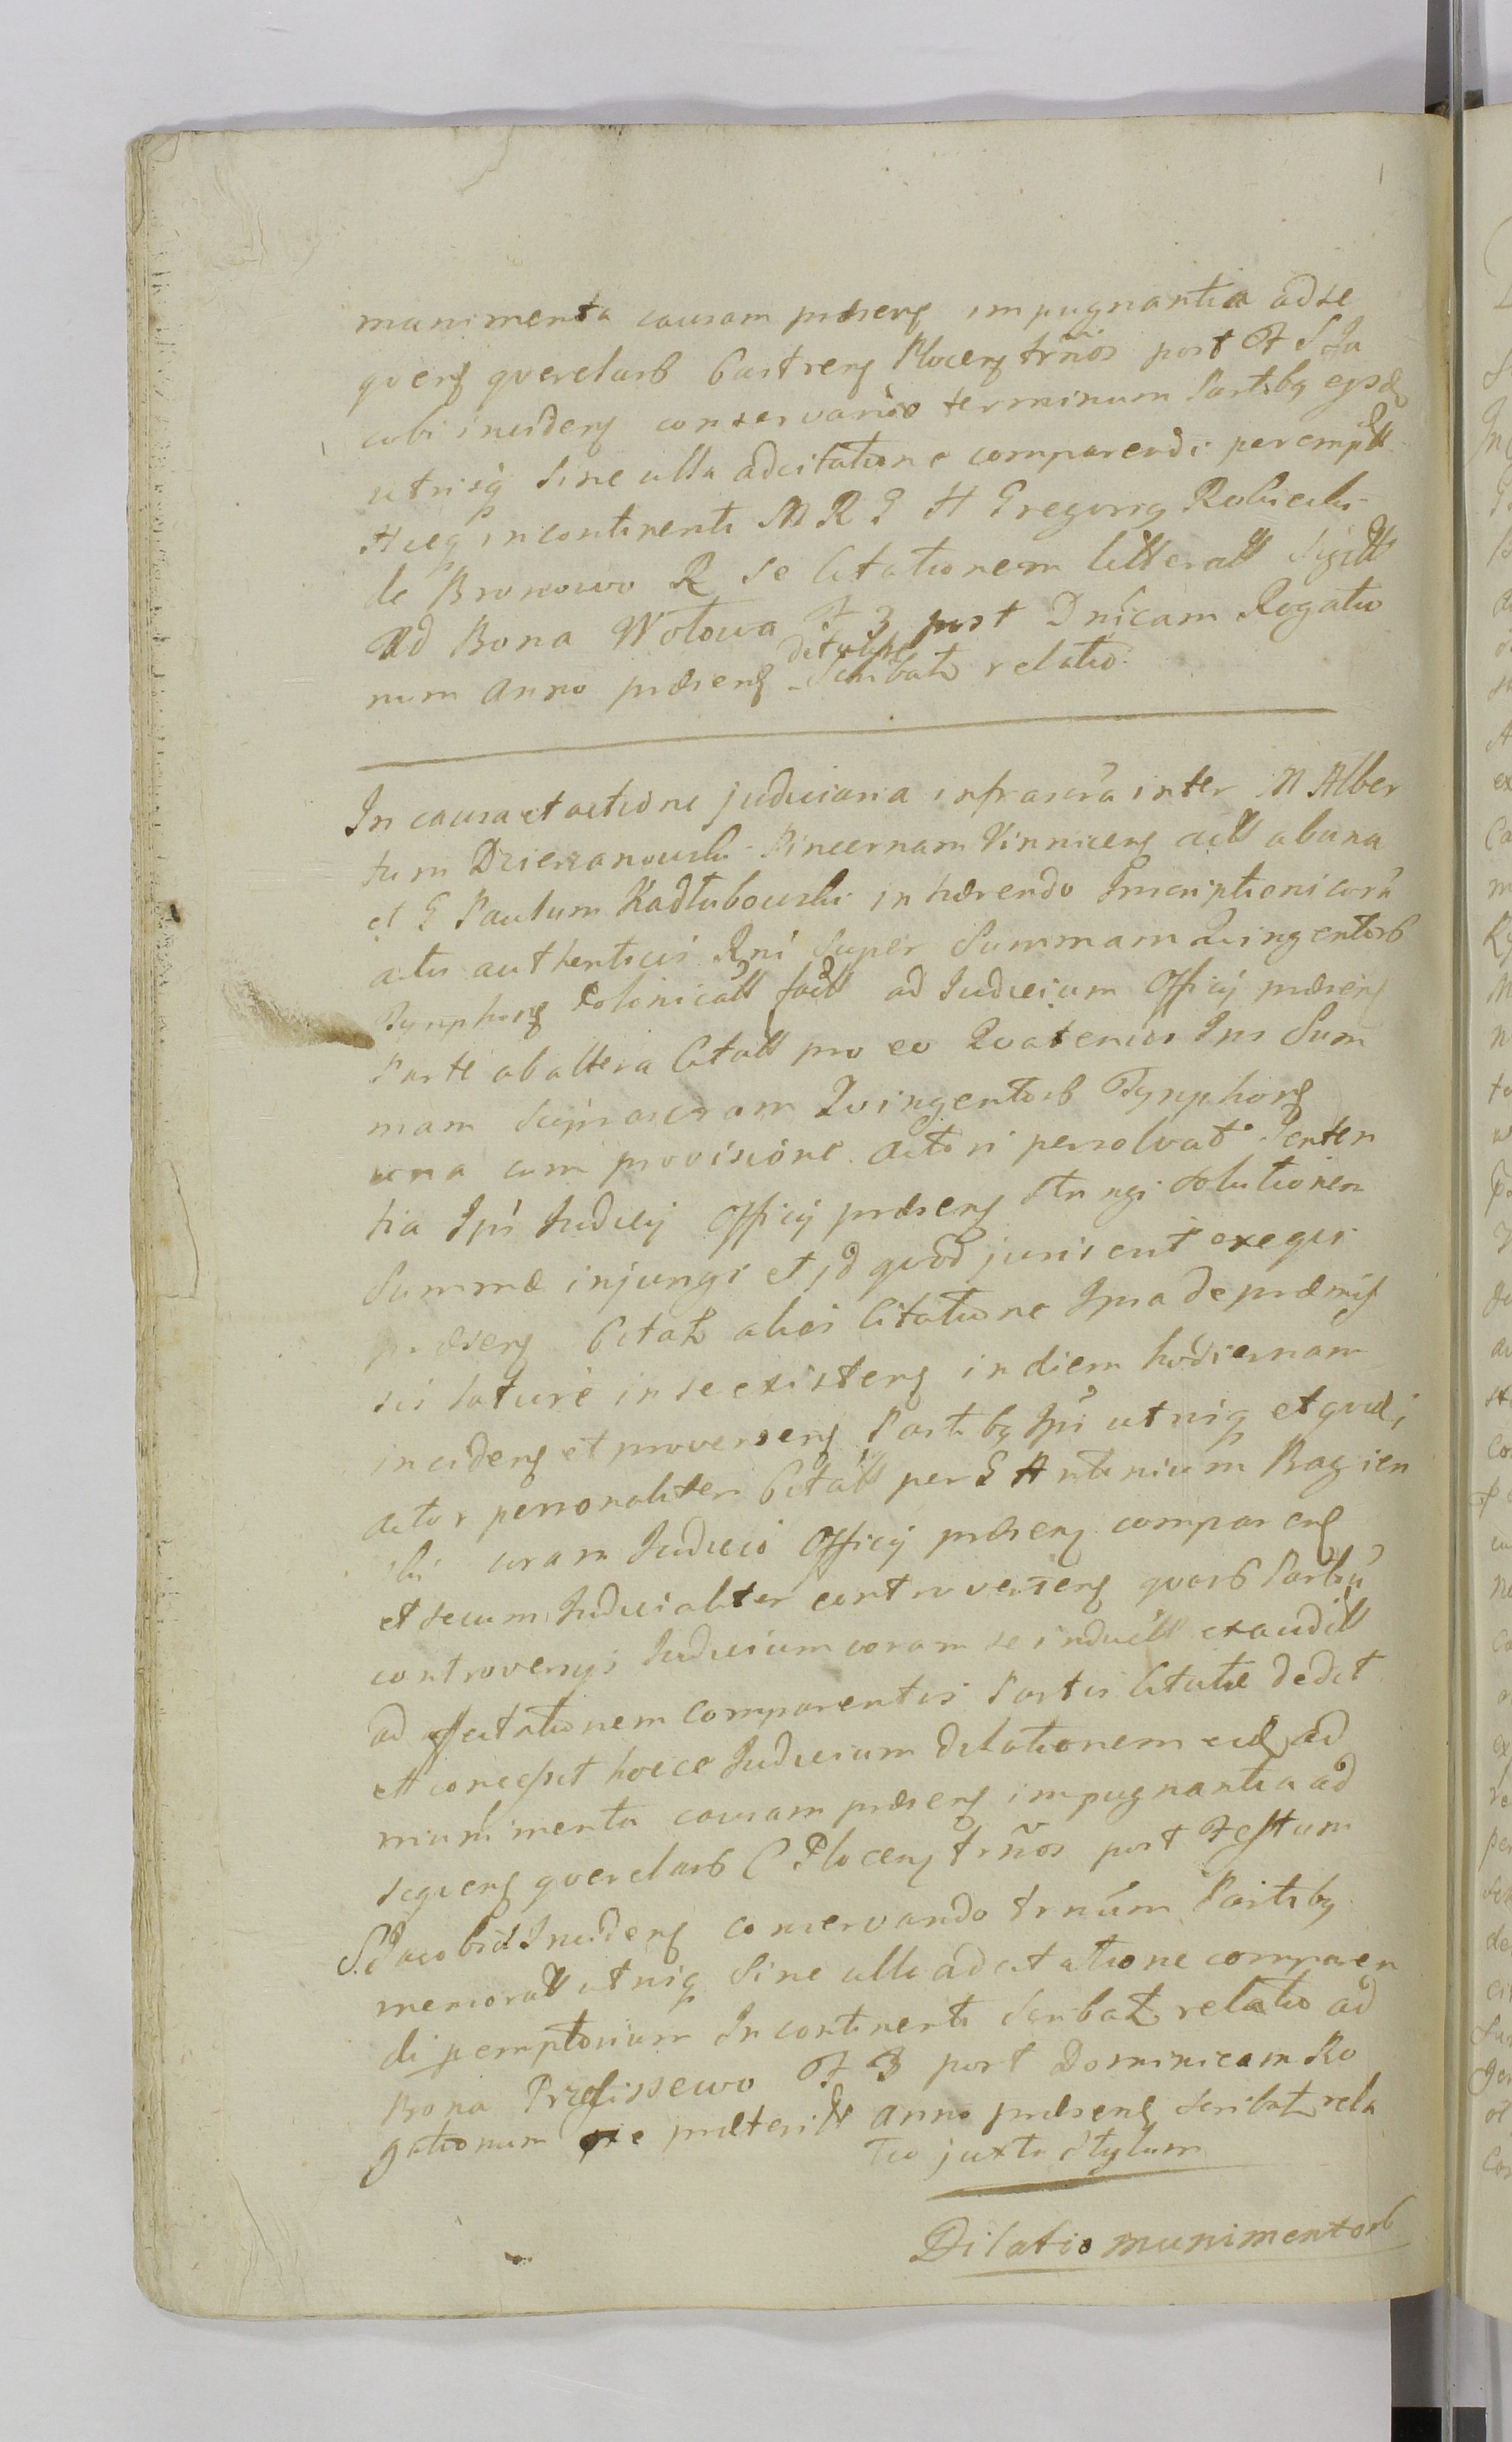 munimenta causam præsens impugnantia ad se
quens querelarb Castrens Plocens trños post F S Ja
cobi incidens conservando terminum Partibq ejsd
utrisq sine ulla adcitatione comparendi perempt
Hicq incontinenti M R G H Gregoriq Robicki
de Bronowo R se Citationem litteratt sigitt
Ad Bona Wołowa F 3 post Dnicam Rogatio
num Anno præsens detulisse Scribat relatio
In causa et actione judiciaria infrascra inter M Alber
tum Dzierzanowski Pincernam Vinnicens actt ab una
et G Paulum Kadłubowski inhærendo Inscriptioni corā
actis authenticis Rni super Summam Quingentorb
Tynphons Polonicatt factt ad Judicium Officij præsens
Parte ab altera Citatt pro eo Quatenus Ips Sum
mam suprascram Quingentorb Tynphons
una cum provisione Actori persolvat Senten
tia Ipi Judicij Officij præsens stringi solutionem
Summæ injungi et id quod juris erit exequi
præsens Citat alias Citatione Ipsa de præmis
sis latius in se existens in diem hodiernam
incidens et proversens Partibq Ipis utrisq et quid
actor personaliter Citatt per G Antonium Bagien
ski coram Judicio Officij præsens comparens
et secum Judicialiter controvertens quarb Partiū
controversijs Judicium coram se inductt exauditt
ad affectationem comparentis Partis Citatæ dedit
et concessit hocce Judicium dilationem eid ad
munimenta causam præsens impugnantia ad
sequens querelarb C Plocens trños post Festum
S. Jacobi Incidens conservando trnum Partibq
memoratt utrisq sine ulla adcitatione comparen
di pemptorium Incontinenti Scribat relatio ad
Bona Przedissewo F 3 post Dominicam Ro
gationum præteritt anno præsens scribat rela
tio juxta stylum
Dilatio munimentorb